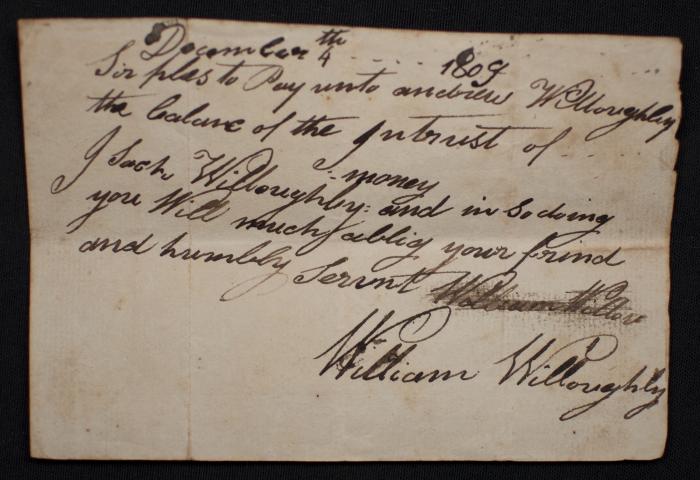 December 4th 1809
Sir ples to Pay unto andrew Willoughby
the balanc of the Intrust of
money
J Sack Willoughby and in So doing
you Will much ablig your frind
and humbly Servnt William Willou
William Willoughby